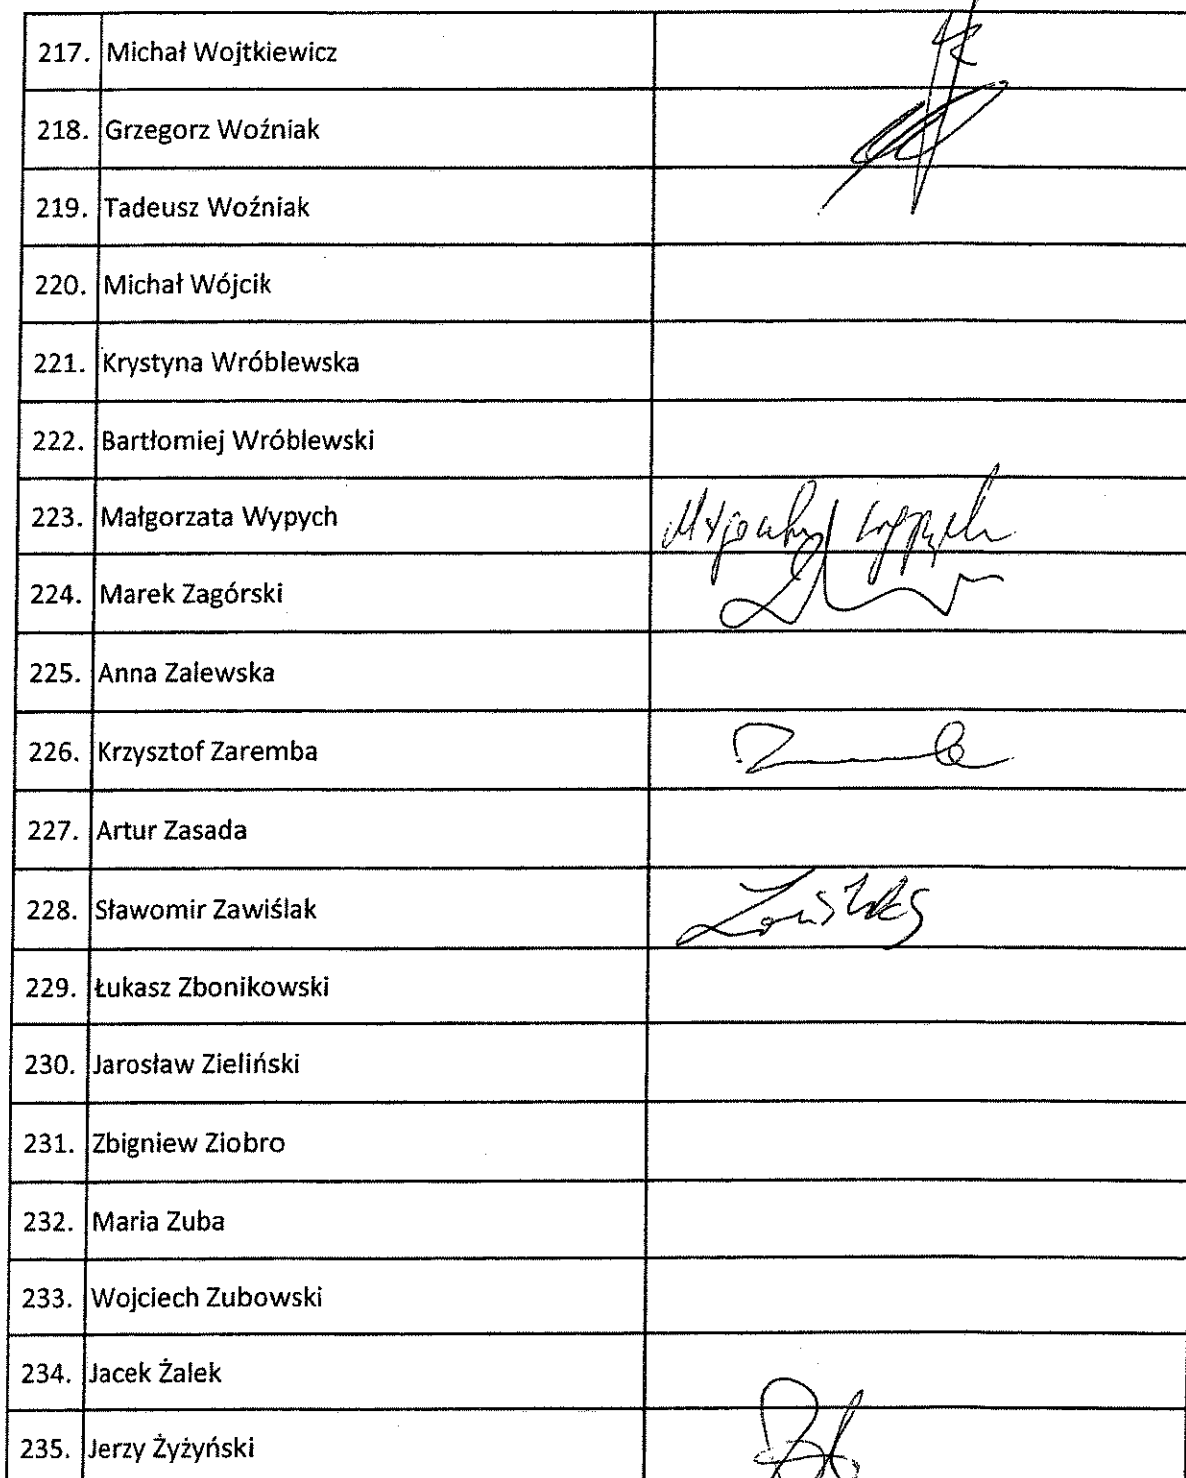 217. Michał Wojtkiewicz
218. Grzegorz Woźniak
219. Tadeusz Woźniak
220. Michał Wójcik
221. Krystyna Wróblewska
222. Bartłomiej Wróblewski
223. Małgorzata Wypych
224. Marek Zagórski
225. Anna Zalewska
226. Krzysztof Zaremba
227. Artur Zasada
228. Sławomir Zawiślak
229. Łukasz Zbonikowski
230. Jarosław Zieliński
231. Zbigniew Ziobro
232. Maria Zuba
233. Wojciech Zubowski
234. Jacek Żalek
235. Jerzy Żyżyński